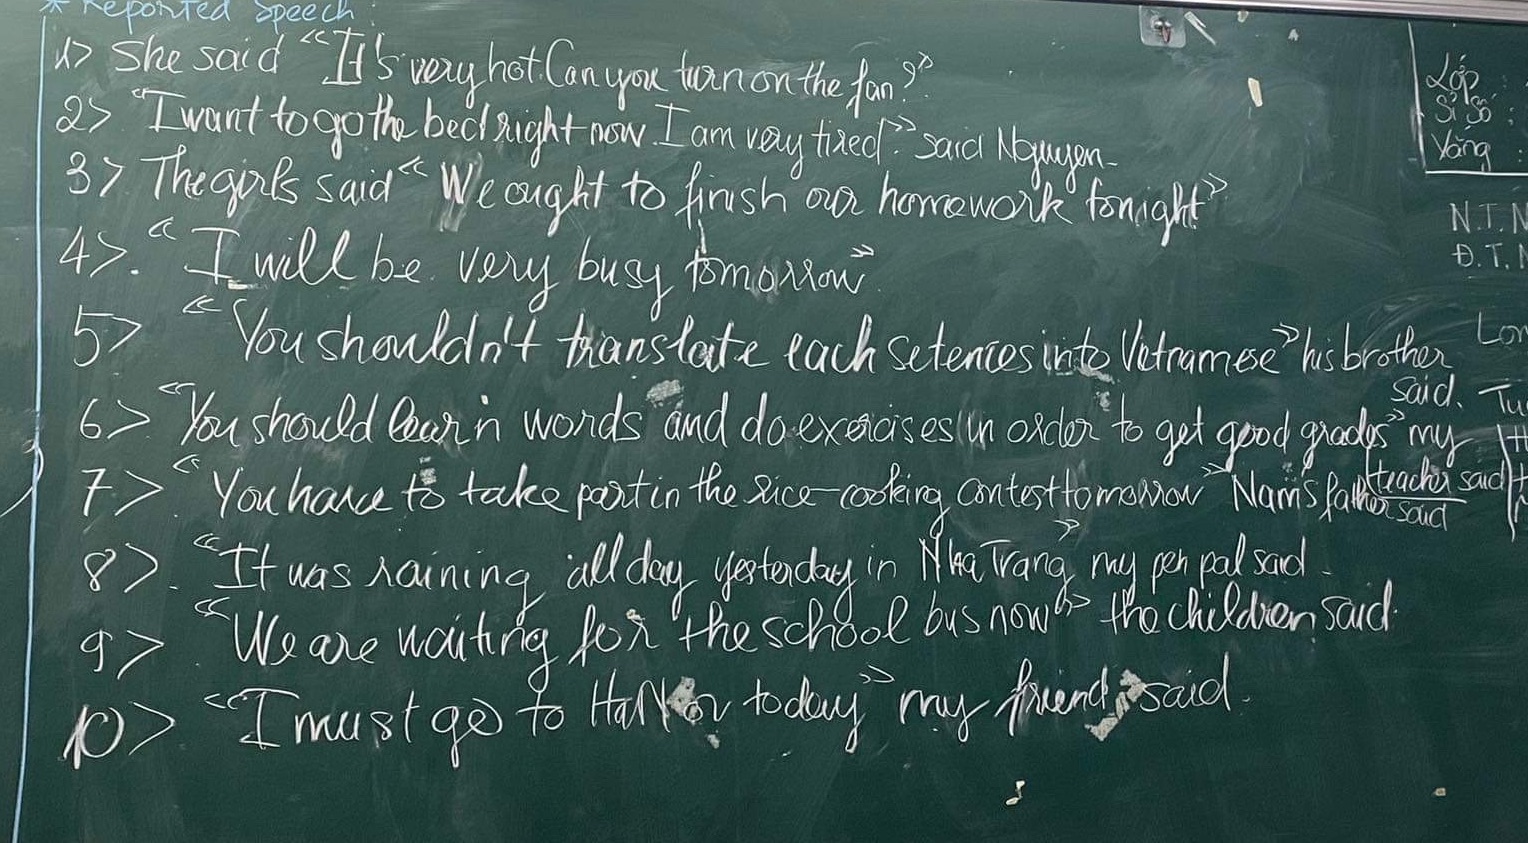 * Reported Speech:
1> She said "It's very hot. Can you turn on the fan?".
2> "I want to go the bed right now. I am very tired". said Nguyen.
3> The girls said "We ought to finish our homework tonight"
4>. "I will be very busy tomorrow".
5> "You shouldn't translate each setences into Vietnamese" his brother said.
6> "You should learn words and do exercises in order to get good grades" my teacher said
7> "You have to take part in the rice-cooking contest tomorrow" Nam's father said
8>. "It was raining all day yesterday in Nha Trang" my pen pal said.
9> "We are waiting for the school bus now" the children said.
10> "I must go to Ha Noi today" my friend said.
Lớp :
Sĩ số :
Vắng :
N.T.N
Đ.T.N